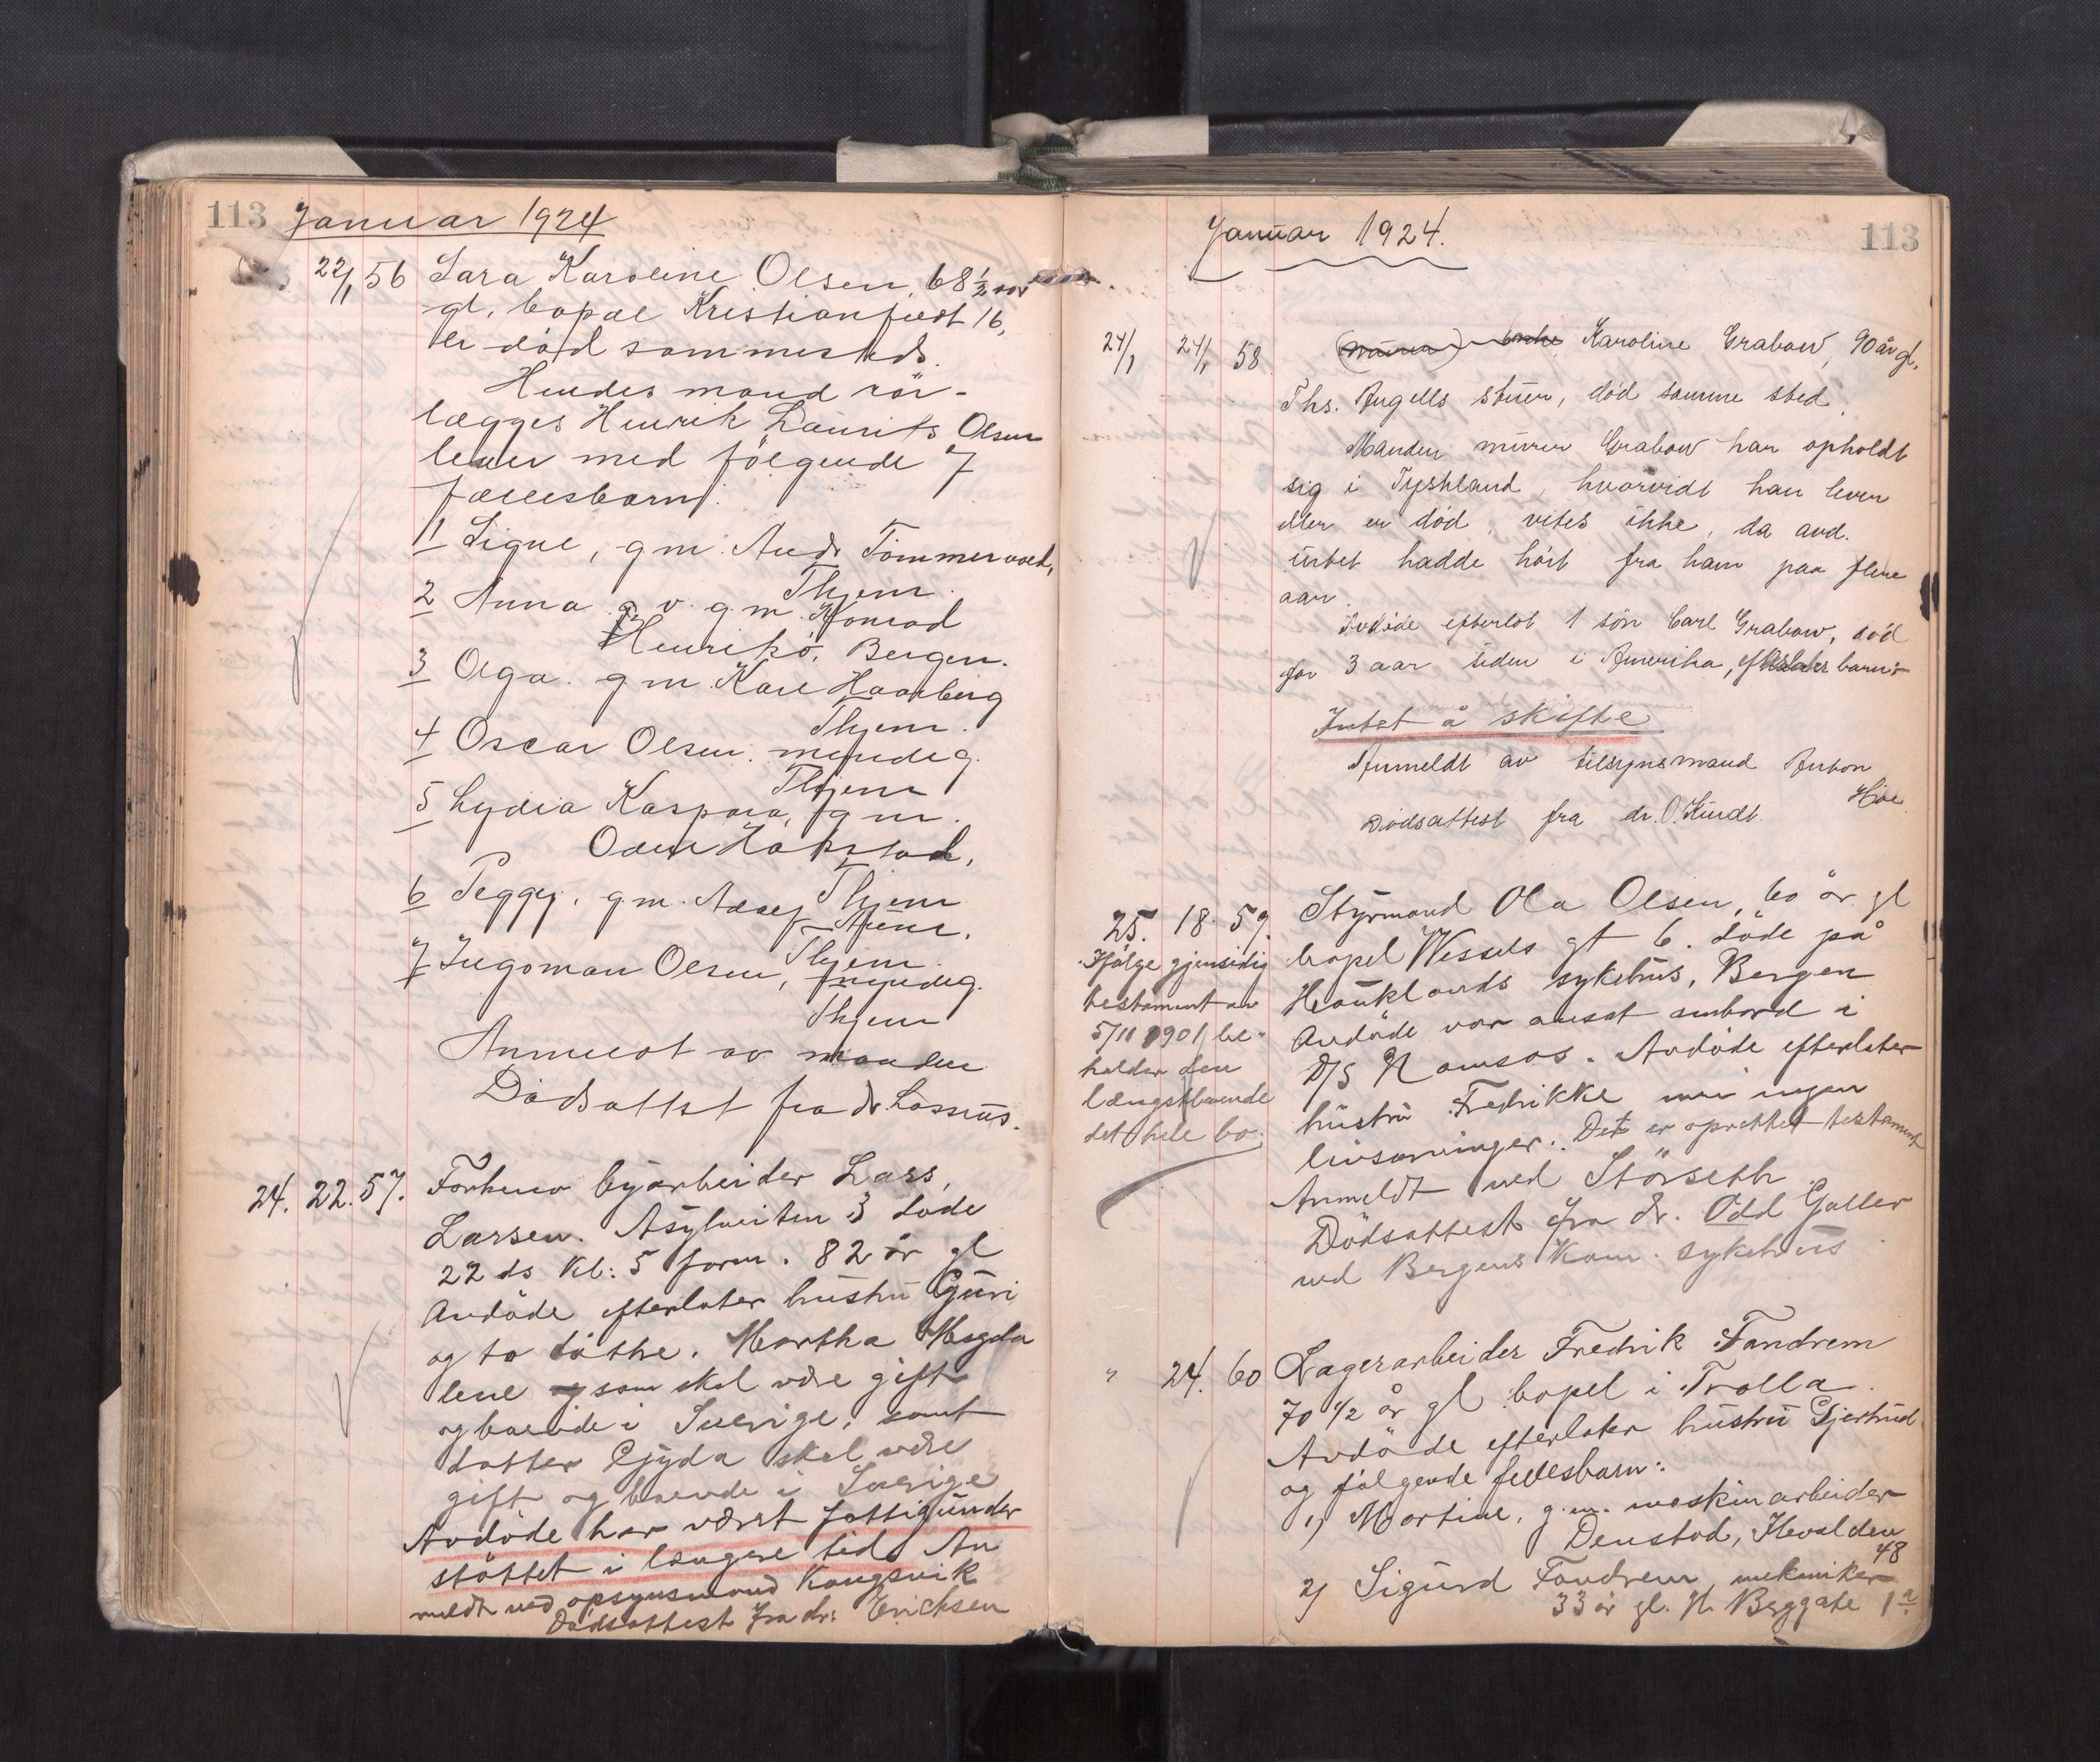 113 Januar 1924
22/1 56 Sara Karoline Olsen, 68 1/2 aar
gl, bopæl Kristianfeldt 16,
er død sammesteds.
Hendes mand rör-
lægges Henrik Laurits Olsen
lever med følgende 7
fællesbarn:
1 Signe, g m. Andr Tömmervold,
Thjem.
2 Anna g. v. g. m. Konrad
Henrikö, Bergen.
3 Olga. g m. Karl Haarberg
Thjem.
4 Oscar Olsen. myndig.
Thjem
5 Lydia Kaspara, g m.
Odin Hakstad,
Thjem
6 Peggy. g m. Adolf
Aune,
Thjem.
7 Ingoman Olsen, myndig.
Thjem
Anmeldt av manden
Dödsattst fra dr. Lossius.
24. 22. 57. Forhenv byarbeider Lars,
Larsen. Asylveiten 3 døde
22 ds kl: 5 form. 82 år gl
Avdöde efterlater hustru Guri
og to døtre. Martha Magda
lene som skal være gift
og boende i Sverige, samt
datter Gyda skal være
gift og boende i Sverige
Avdöde har været fattigunder
støttet i længere tid. An
meldt ved opsynsmand Kangsvik
Dødsattest fra dr: Erichsen
Januar 1924. 113
24/1 24/1 58 (murer) enke Karoline Grabow, 90 år gl,
Ths. Angells stuer, død samme sted.
Manden murer Grabow har opholdt
sig i Tyskland, hvorvidt han lever
eller er død, vites ikke, da avd.
intet hadde hört fra ham paa flere
aar.
Avdöde efterlot 1 sön Carl Grabow, död
for 3 aar siden i Amerika, efterlater barn.
Intet å skifte
Anmeldt av tilsynsmand Anton
Høe
Dødsattest fra dr. O. Kindt.
25. 18. 59. Styrmand Ola Olsen, 60 år gl
bopel Wessels gt 6. døde på
Hauklands sykehus, Bergen
Avdöde var ansat ombord i
D/S Namsos. Avdöde efterlater
hustru Fredrikke men ingen
livsarvinger. Det er oprettet testament
Anmeldt ved Störseth
Dödsattest fra dr. Odd Galler
ved Bergens Kom. sykehus
Ifølge gjensidig
testament av
5/11 1901 be-
holder den
længstlevende
det hele bo.
" 24. 60 Lagerarbeider Fredrik Fandrem
70 1/2 år gl bopel i Trolla.
Avdöde efterlater hustru Gjertrud
og følgende fellesbarn:
1) Martine, g.m. maskinarbeider
Denstad, Ilevolden
48
2) Sigurd Fandrem mekaniker
33 år gl. N. Berggate 1 a